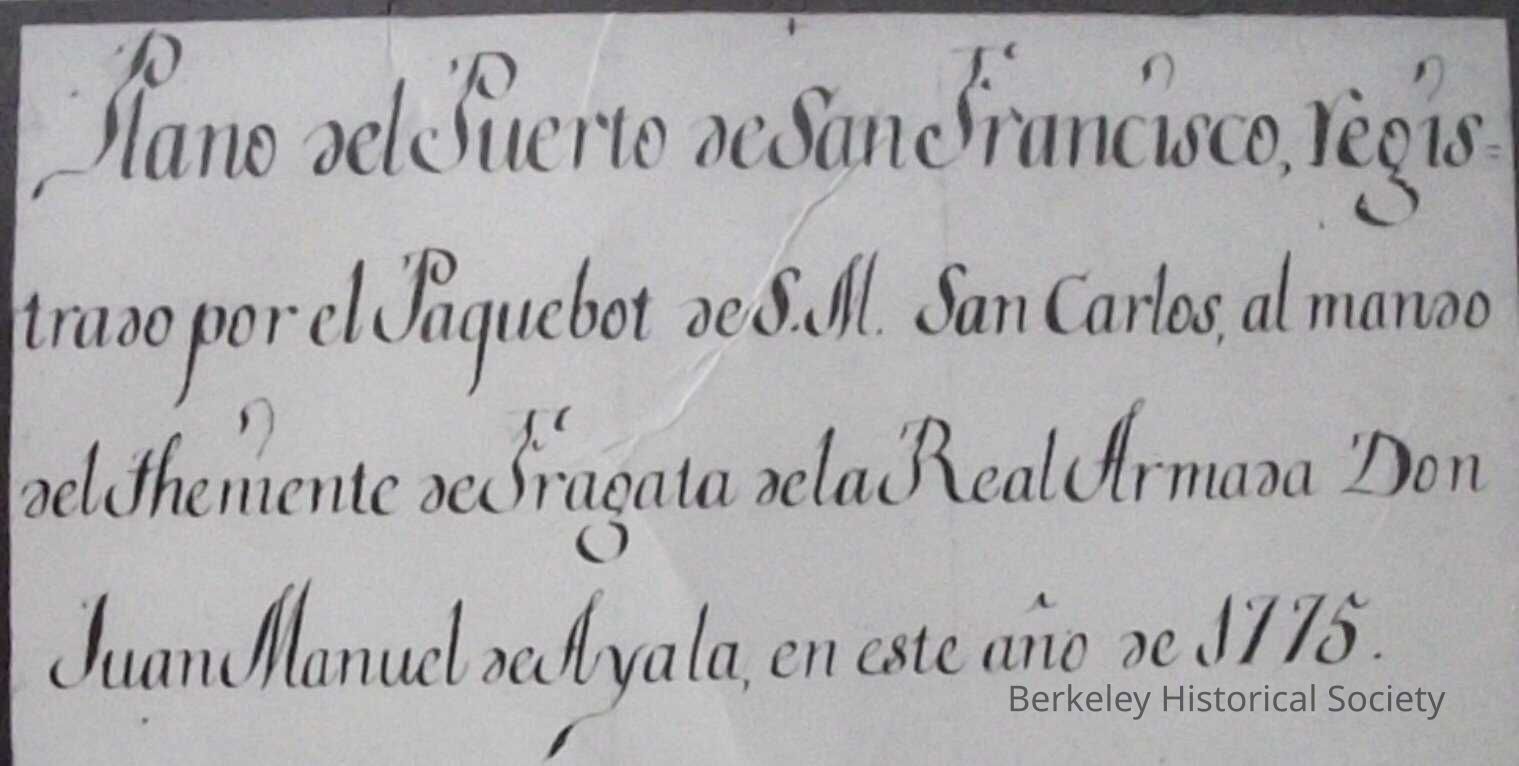 Plano del Puerto de San Francisco, regis=
trado por el Paquebot de S.M. San Carlos, al mando
del Theniente de Fragata de la Real Armada Don
Juan Manuel de Ayala, en este año de 1775.
Berkeley Historical Society